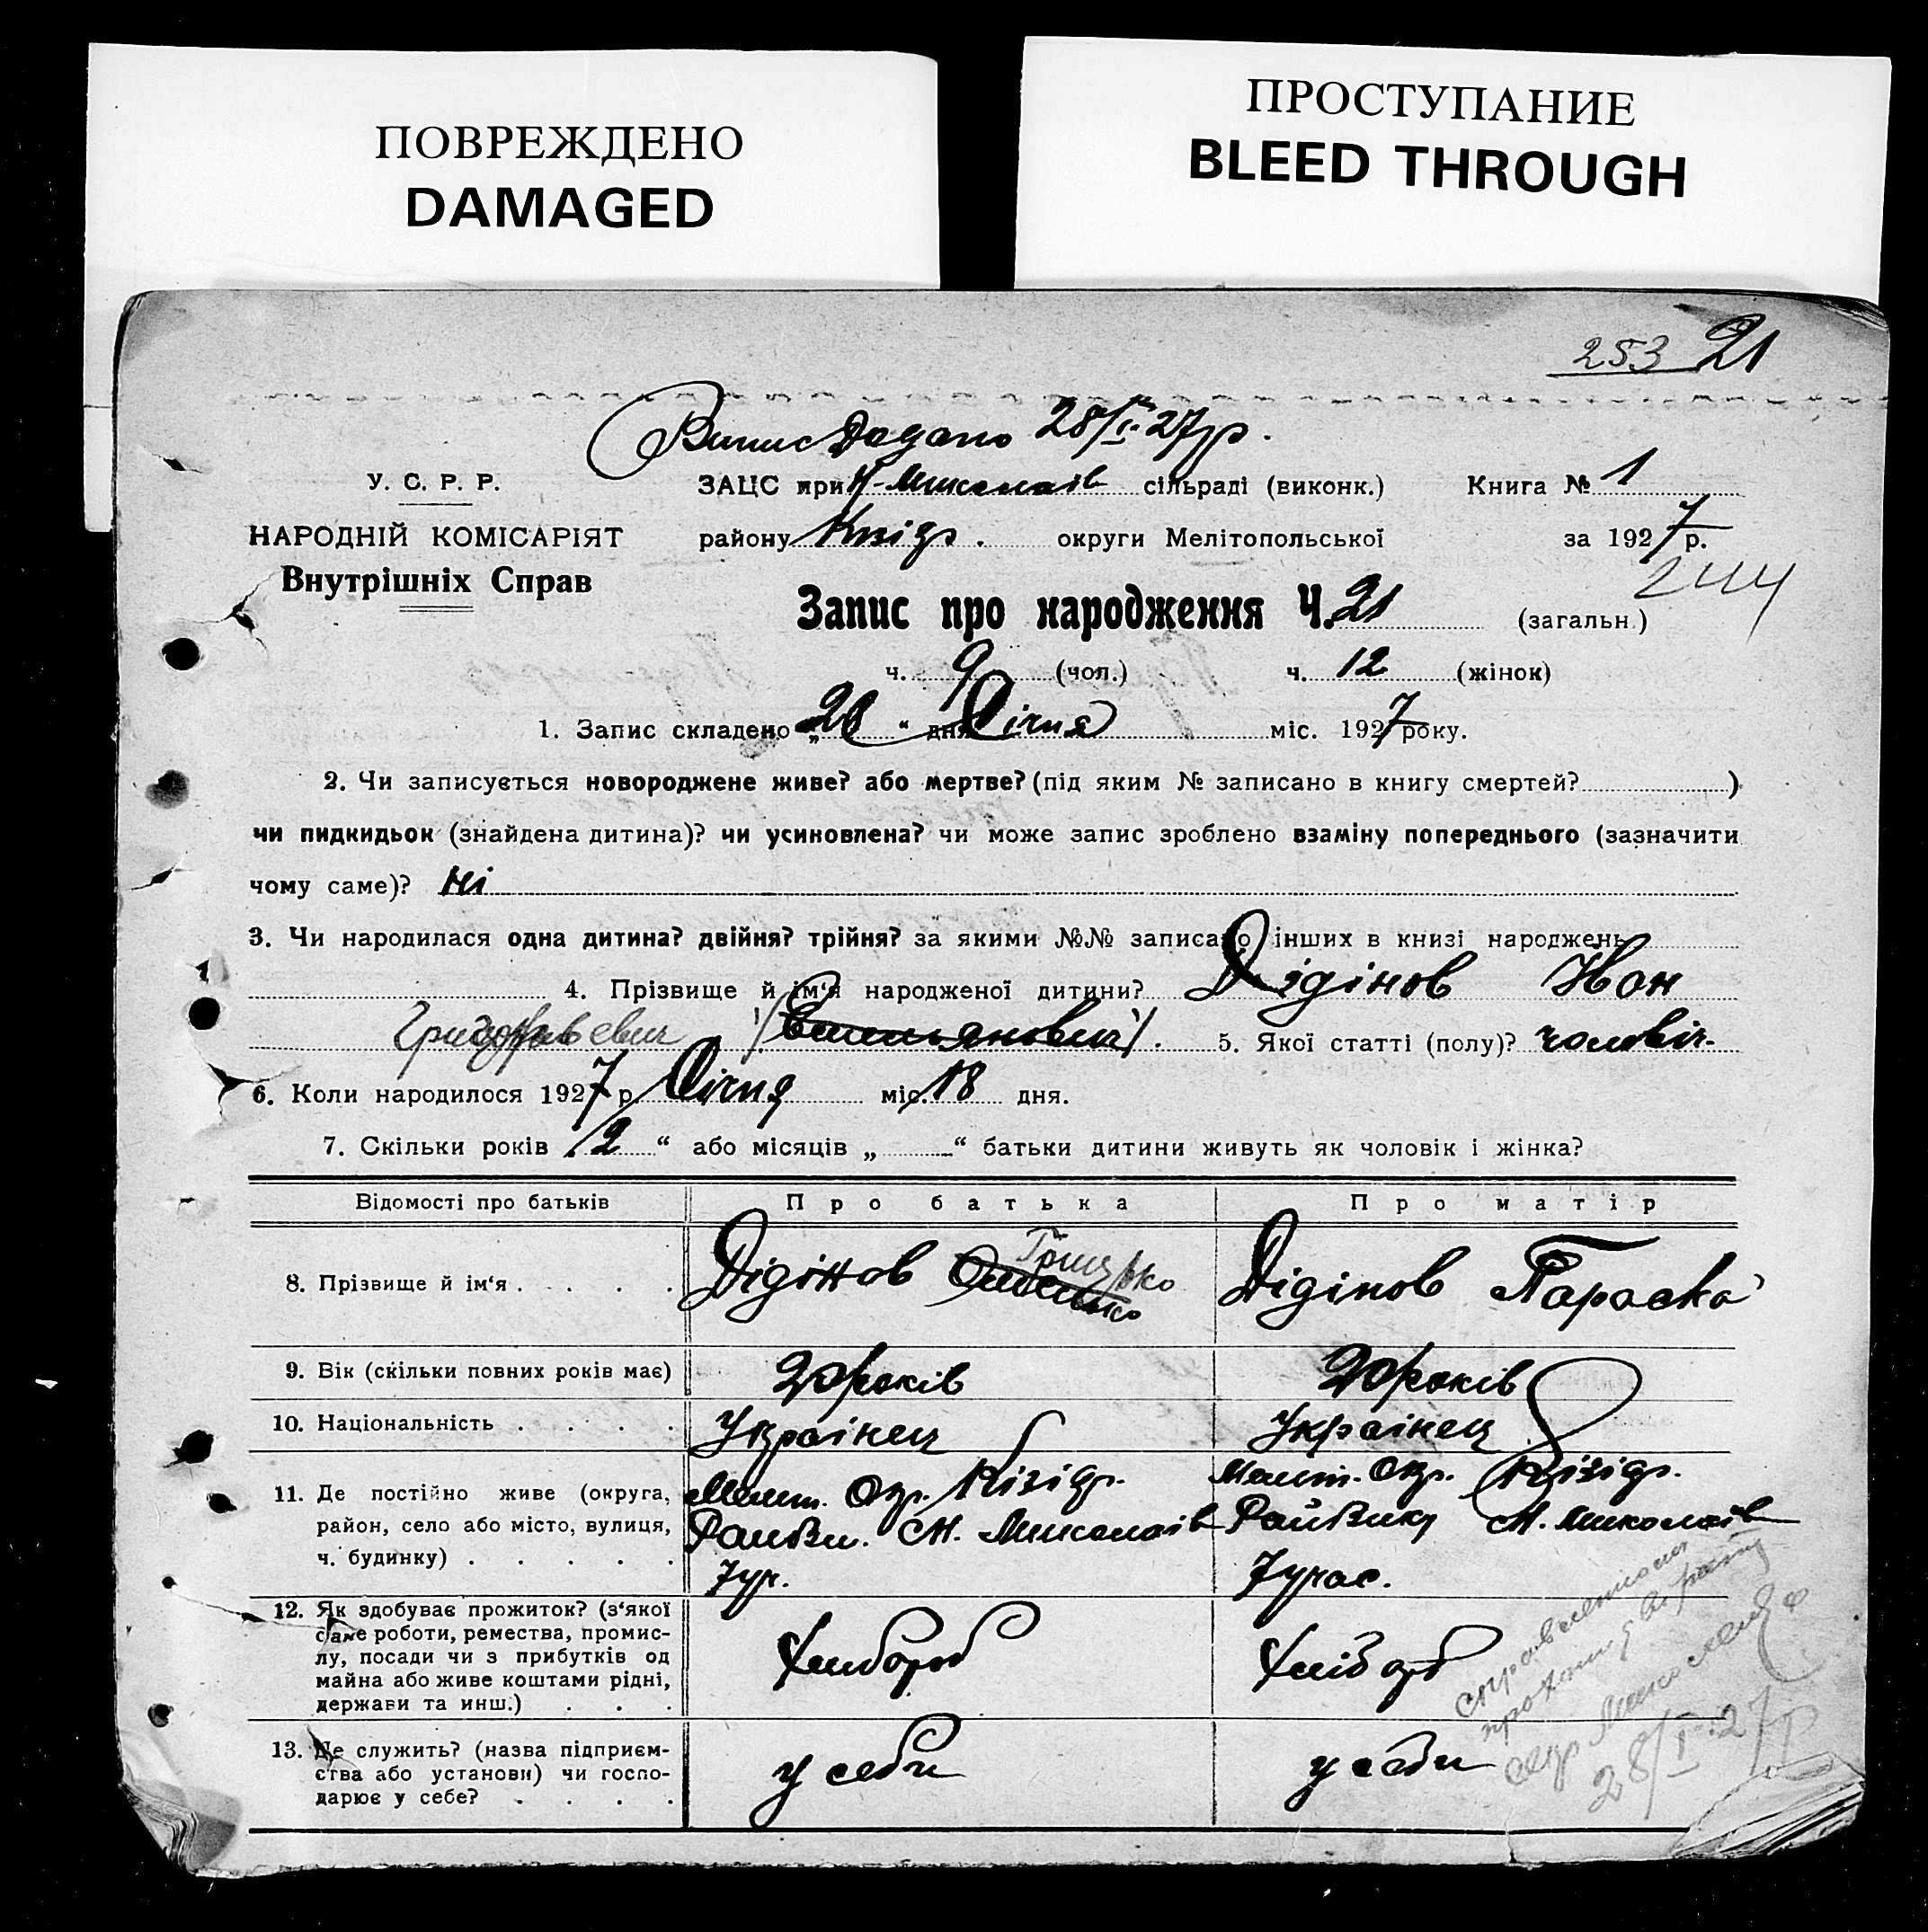 ПОВРЕЖДЕНО
DAMAGED
ПРОСТУПАНИЕ
BLEED THROUGH
253 21
Випис 28/I-27р.
У. С. Р. Р.
ЗАЦС при Н-Миколаїв сільраді (виконк.) Книга № 1
НАРОДНІЙ КОМІСАРІЯТ
району округи Мелітопольської за 1927 р.
Внутрішніх Справ
244
Запис про народження Ч. 21 (загальн.)
ч. 9 (чол.) ч. 12 (жінок)
1. Запис складено „28“ дня Січня міс. 1927 року.
2. Чи записується новороджене живе? або мертве? (під яким № записано в книгу смертей? )
чи пидкидьок (знайдена дитина)? чи усиновлена? чи може запис зроблено взаміну попереднього (зазначити
чому саме)? Ні
3. Чи народилася одна дитина? двійня? трійня? за якими №№ записано інших в книзі народжень
4. Прізвище й ім‘я народженої дитини? Дідінов Іван
(Емельянович). 5. Якої статті (полу)? чоловіч.
6. Коли народилося 1927 р. Січня міс. 18 дня.
7. Скільки років „2“ або місяців „ “ батьки дитини живуть як чоловік і жінка?
Відомості про батьків Про батька Про матір
8. Прізвище й ім‘я . . . . Дідінов Грицько Дідінов Параска
9. Вік (скільки повних років має) 20 років 20 років
10. Національність . . . . Українец Українец
11. Де постійно живе (округа, Меліт. Окр. Меліт. Окр.
район, село або місто, вулиця, Н. Миколаїв Райвику Н. Миколаїв
ч. будинку) . . . . .
12. Як здобуває прожиток? (з‘якої
саме роботи, ремества, промис-
лу, посади чи з прибутків од Хлібороб Хлібороб
майна або живе коштами рідні,
держави та инш.) . . .
13. Де служить? (назва підприєм-
ства або установи) чи госпо- у себи у себи
дарює у себе? . . . .
28/I-27р